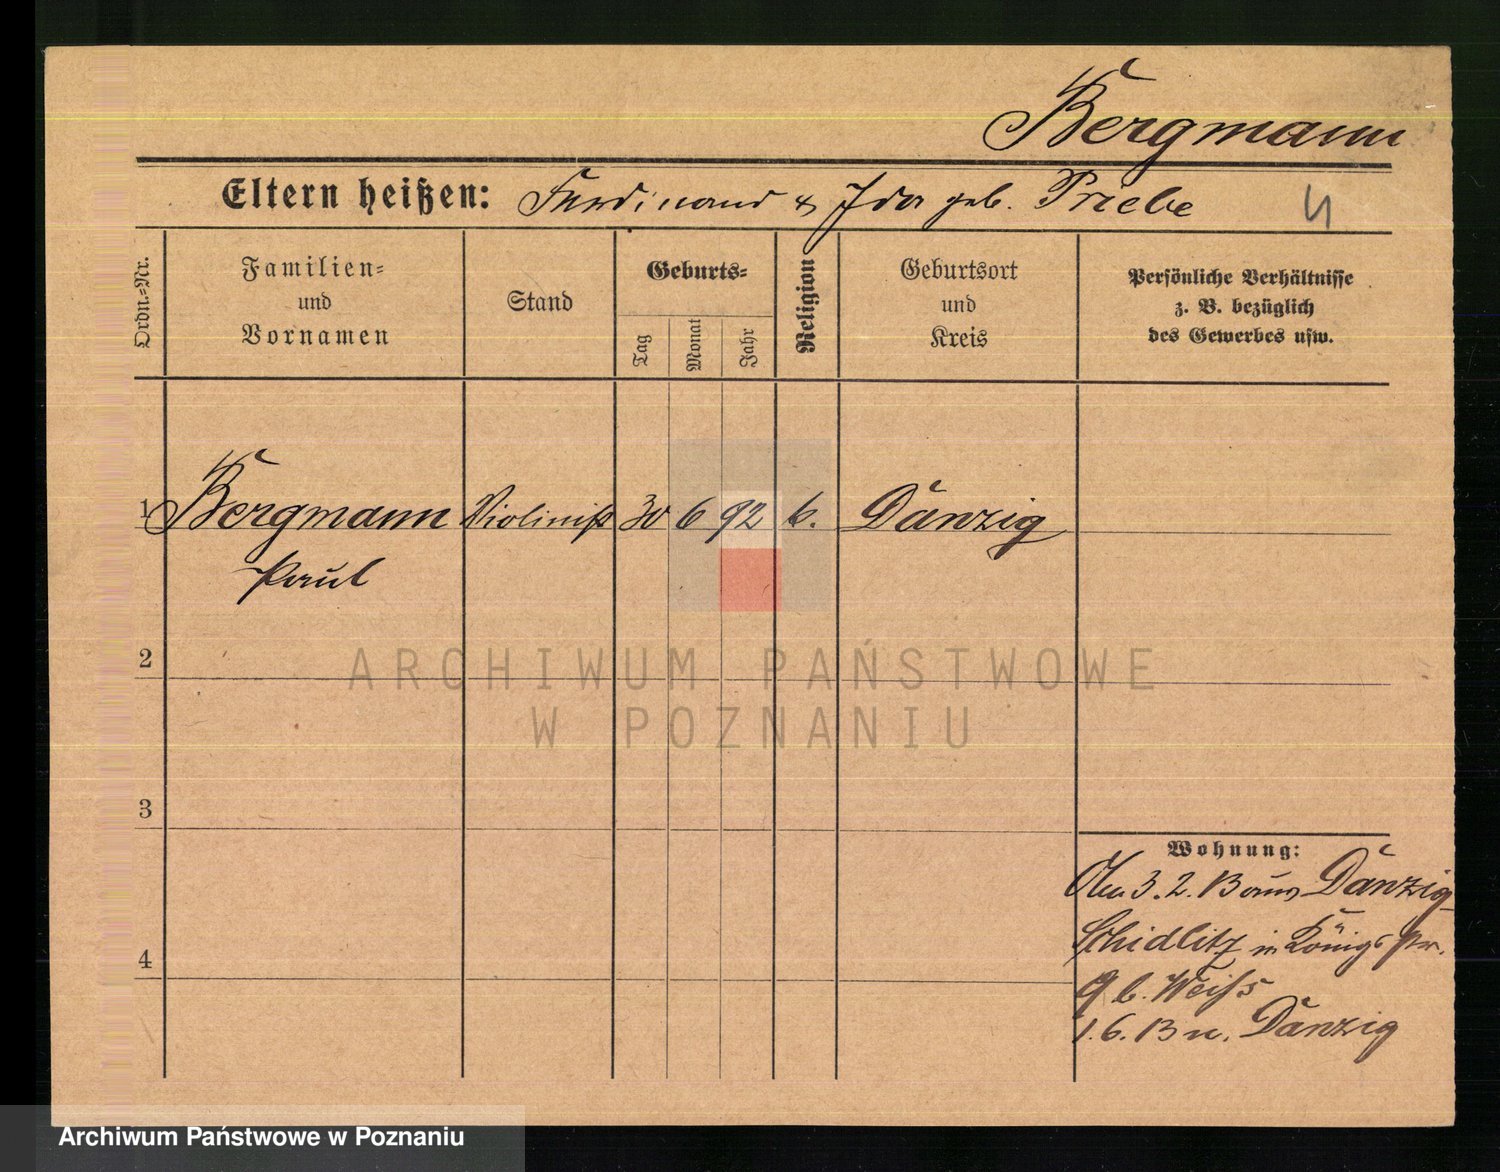 Bergmann
Eltern heißen: Ferdinand & Ida geb. Priebe
4
Ordn.-Nr.
Familien-
und
Vornamen
Stand
Geburts-
Tag
Monat
Jahr
Religion
Geburtsort
und
Kreis
Persönliche Verhältnisse
z. B. bezüglich
des Gewerbes usw.
1 Bergmann Violinist 30 6 92 k. Danzig
Paul
2
3
4
Wohnung:
3.2.13 aus Danzig-
Schidlitz in Königspr.
9 b. Weiss
1.6.13 n. Danzig
ARCHIWUM PAŃSTWOWE
W POZNANIU
Archiwum Państwowe w Poznaniu